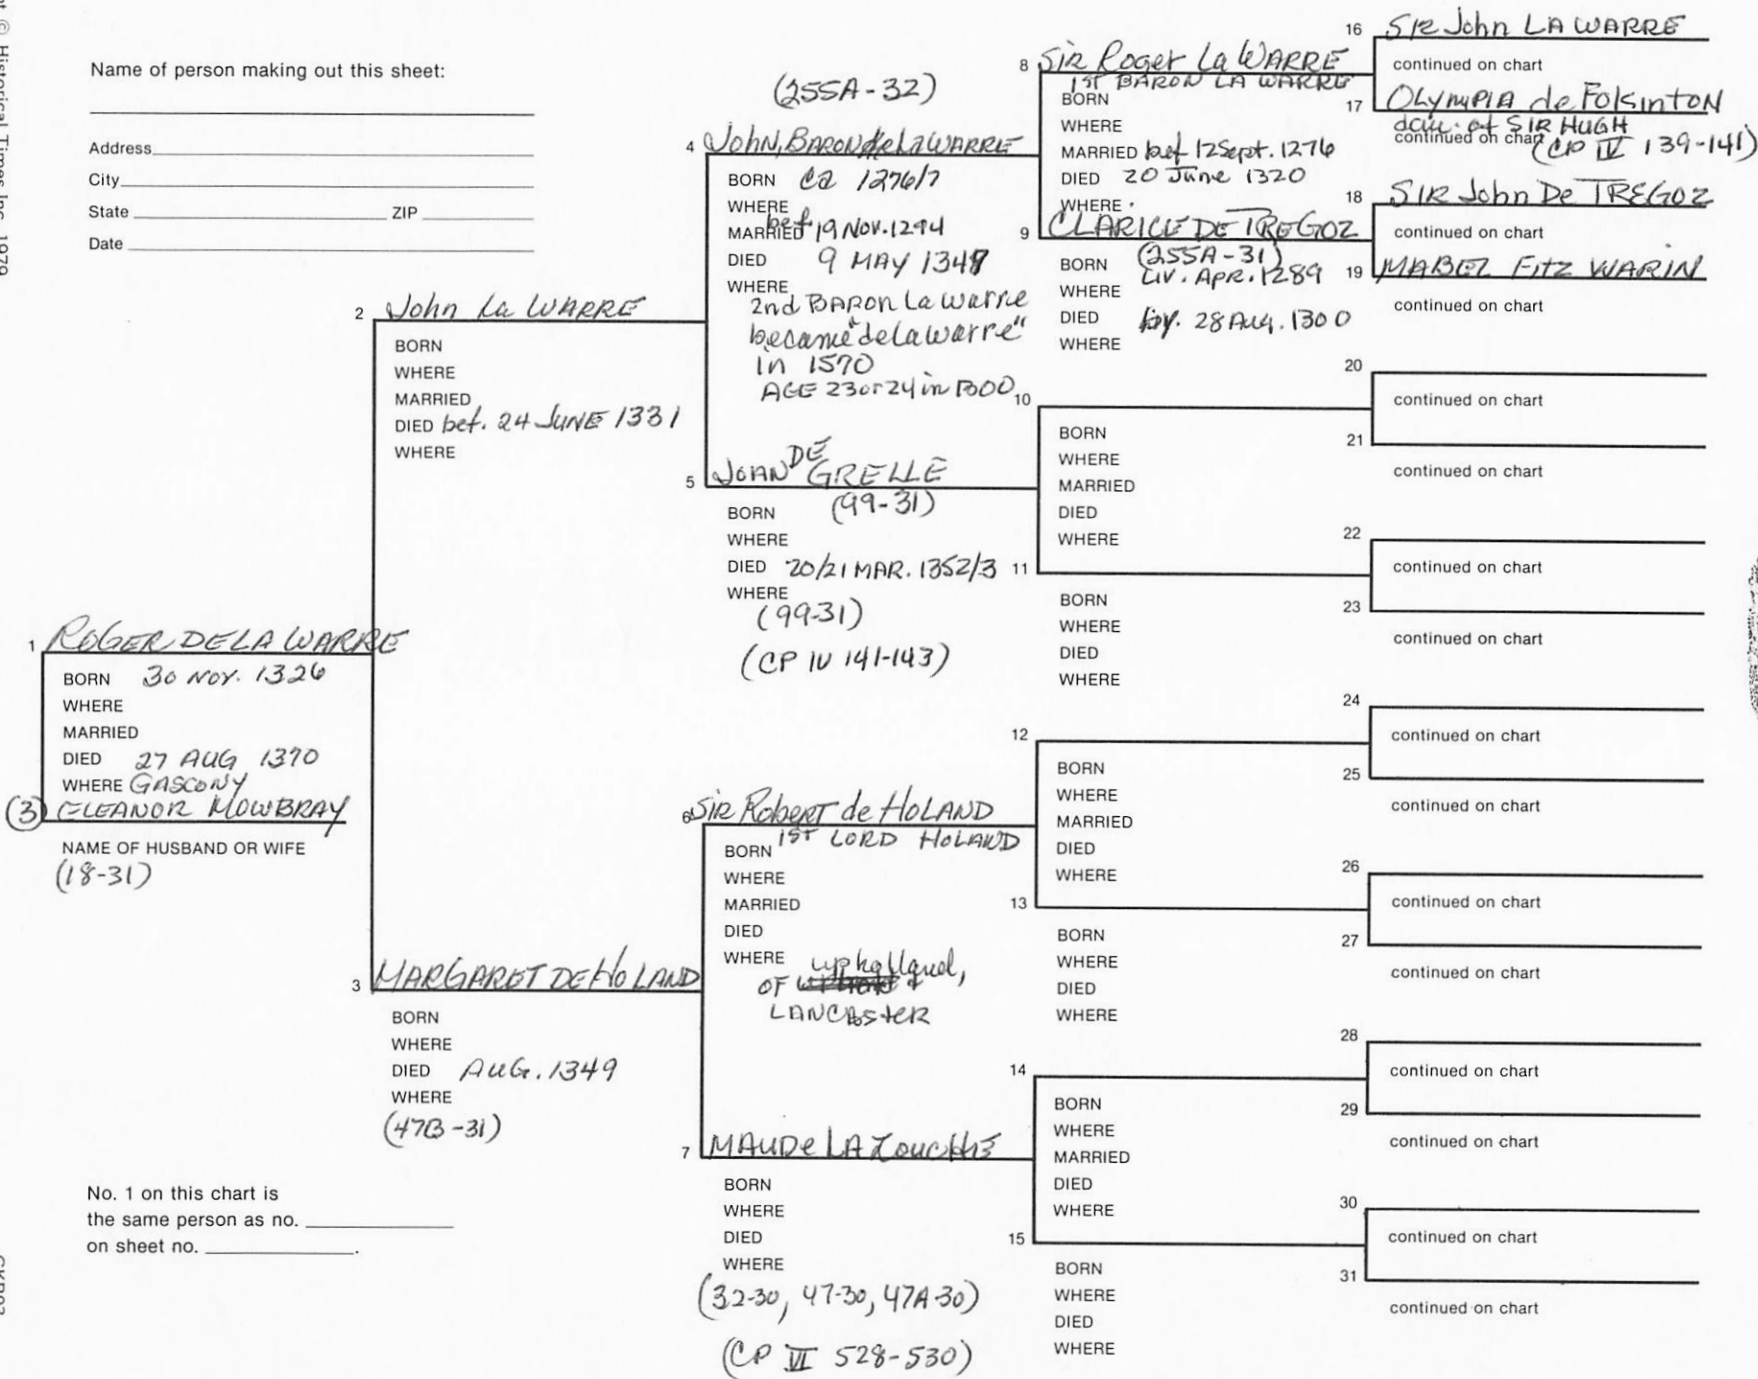 © Historical Times Inc. 1979
Name of person making out this sheet:
Address
City
State ZIP
Date
No. 1 on this chart is
the same person as no.
on sheet no.
1 ROGER DE LA WARRE
BORN 30 NOV. 1326
WHERE
MARRIED
DIED 27 AUG 1370
WHERE GASCONY
(3) ELEANOR MOWBRAY
NAME OF HUSBAND OR WIFE
(18-31)
2 John La WARRE
BORN
WHERE
MARRIED
DIED bef. 24 JUNE 1331
WHERE
3 MARGARET DE HOLAND
BORN
WHERE
DIED AUG. 1349
WHERE
(47B-31)
(255A-32)
4 John, BARON de La WARRE
BORN ca 1276/7
WHERE
MARRIED bef 19 NOV. 1294
DIED 9 MAY 1347
WHERE
2nd BARON La Warre
became "delaWarre"
in 1570
AGE 23 or 24 in 1300
5 JOAN DE GRELLE
(99-31)
BORN
WHERE
DIED 20/21 MAR. 1352/3
WHERE
(99-31)
(CP IV 141-143)
6 Sir Robert de HOLAND
1ST LORD HOLAND
BORN
WHERE
MARRIED
DIED
WHERE
OF upholland,
LANCASTER
7 MAUDe LA ZOUCHE
BORN
WHERE
DIED
WHERE
(32-30, 47-30, 47A-30)
(CP VI 528-530)
8 Sir Roger La WARRE
1ST BARON LA WARRE
BORN
WHERE
MARRIED bef 12 Sept. 1276
DIED 20 June 1320
WHERE
9 CLARICE DE TREGOZ
(255A-31)
BORN Liv. APR. 1289
WHERE
DIED by. 28 AUG. 1300
WHERE
10
BORN
WHERE
MARRIED
DIED
WHERE
11
BORN
WHERE
DIED
WHERE
12
BORN
WHERE
MARRIED
DIED
WHERE
13
BORN
WHERE
DIED
WHERE
14
BORN
WHERE
MARRIED
DIED
WHERE
15
BORN
WHERE
DIED
WHERE
16 SIR John LA WARRE
continued on chart
17 OLYMPIA de FOKINTON
dau. of SIR HUGH
continued on chart (CP IV 139-141)
18 SIR John De TREGOZ
continued on chart
19 MABEL FITZ WARIN
continued on chart
20
continued on chart
21
continued on chart
22
continued on chart
23
continued on chart
24
continued on chart
25
continued on chart
26
continued on chart
27
continued on chart
28
continued on chart
29
continued on chart
30
continued on chart
31
continued on chart